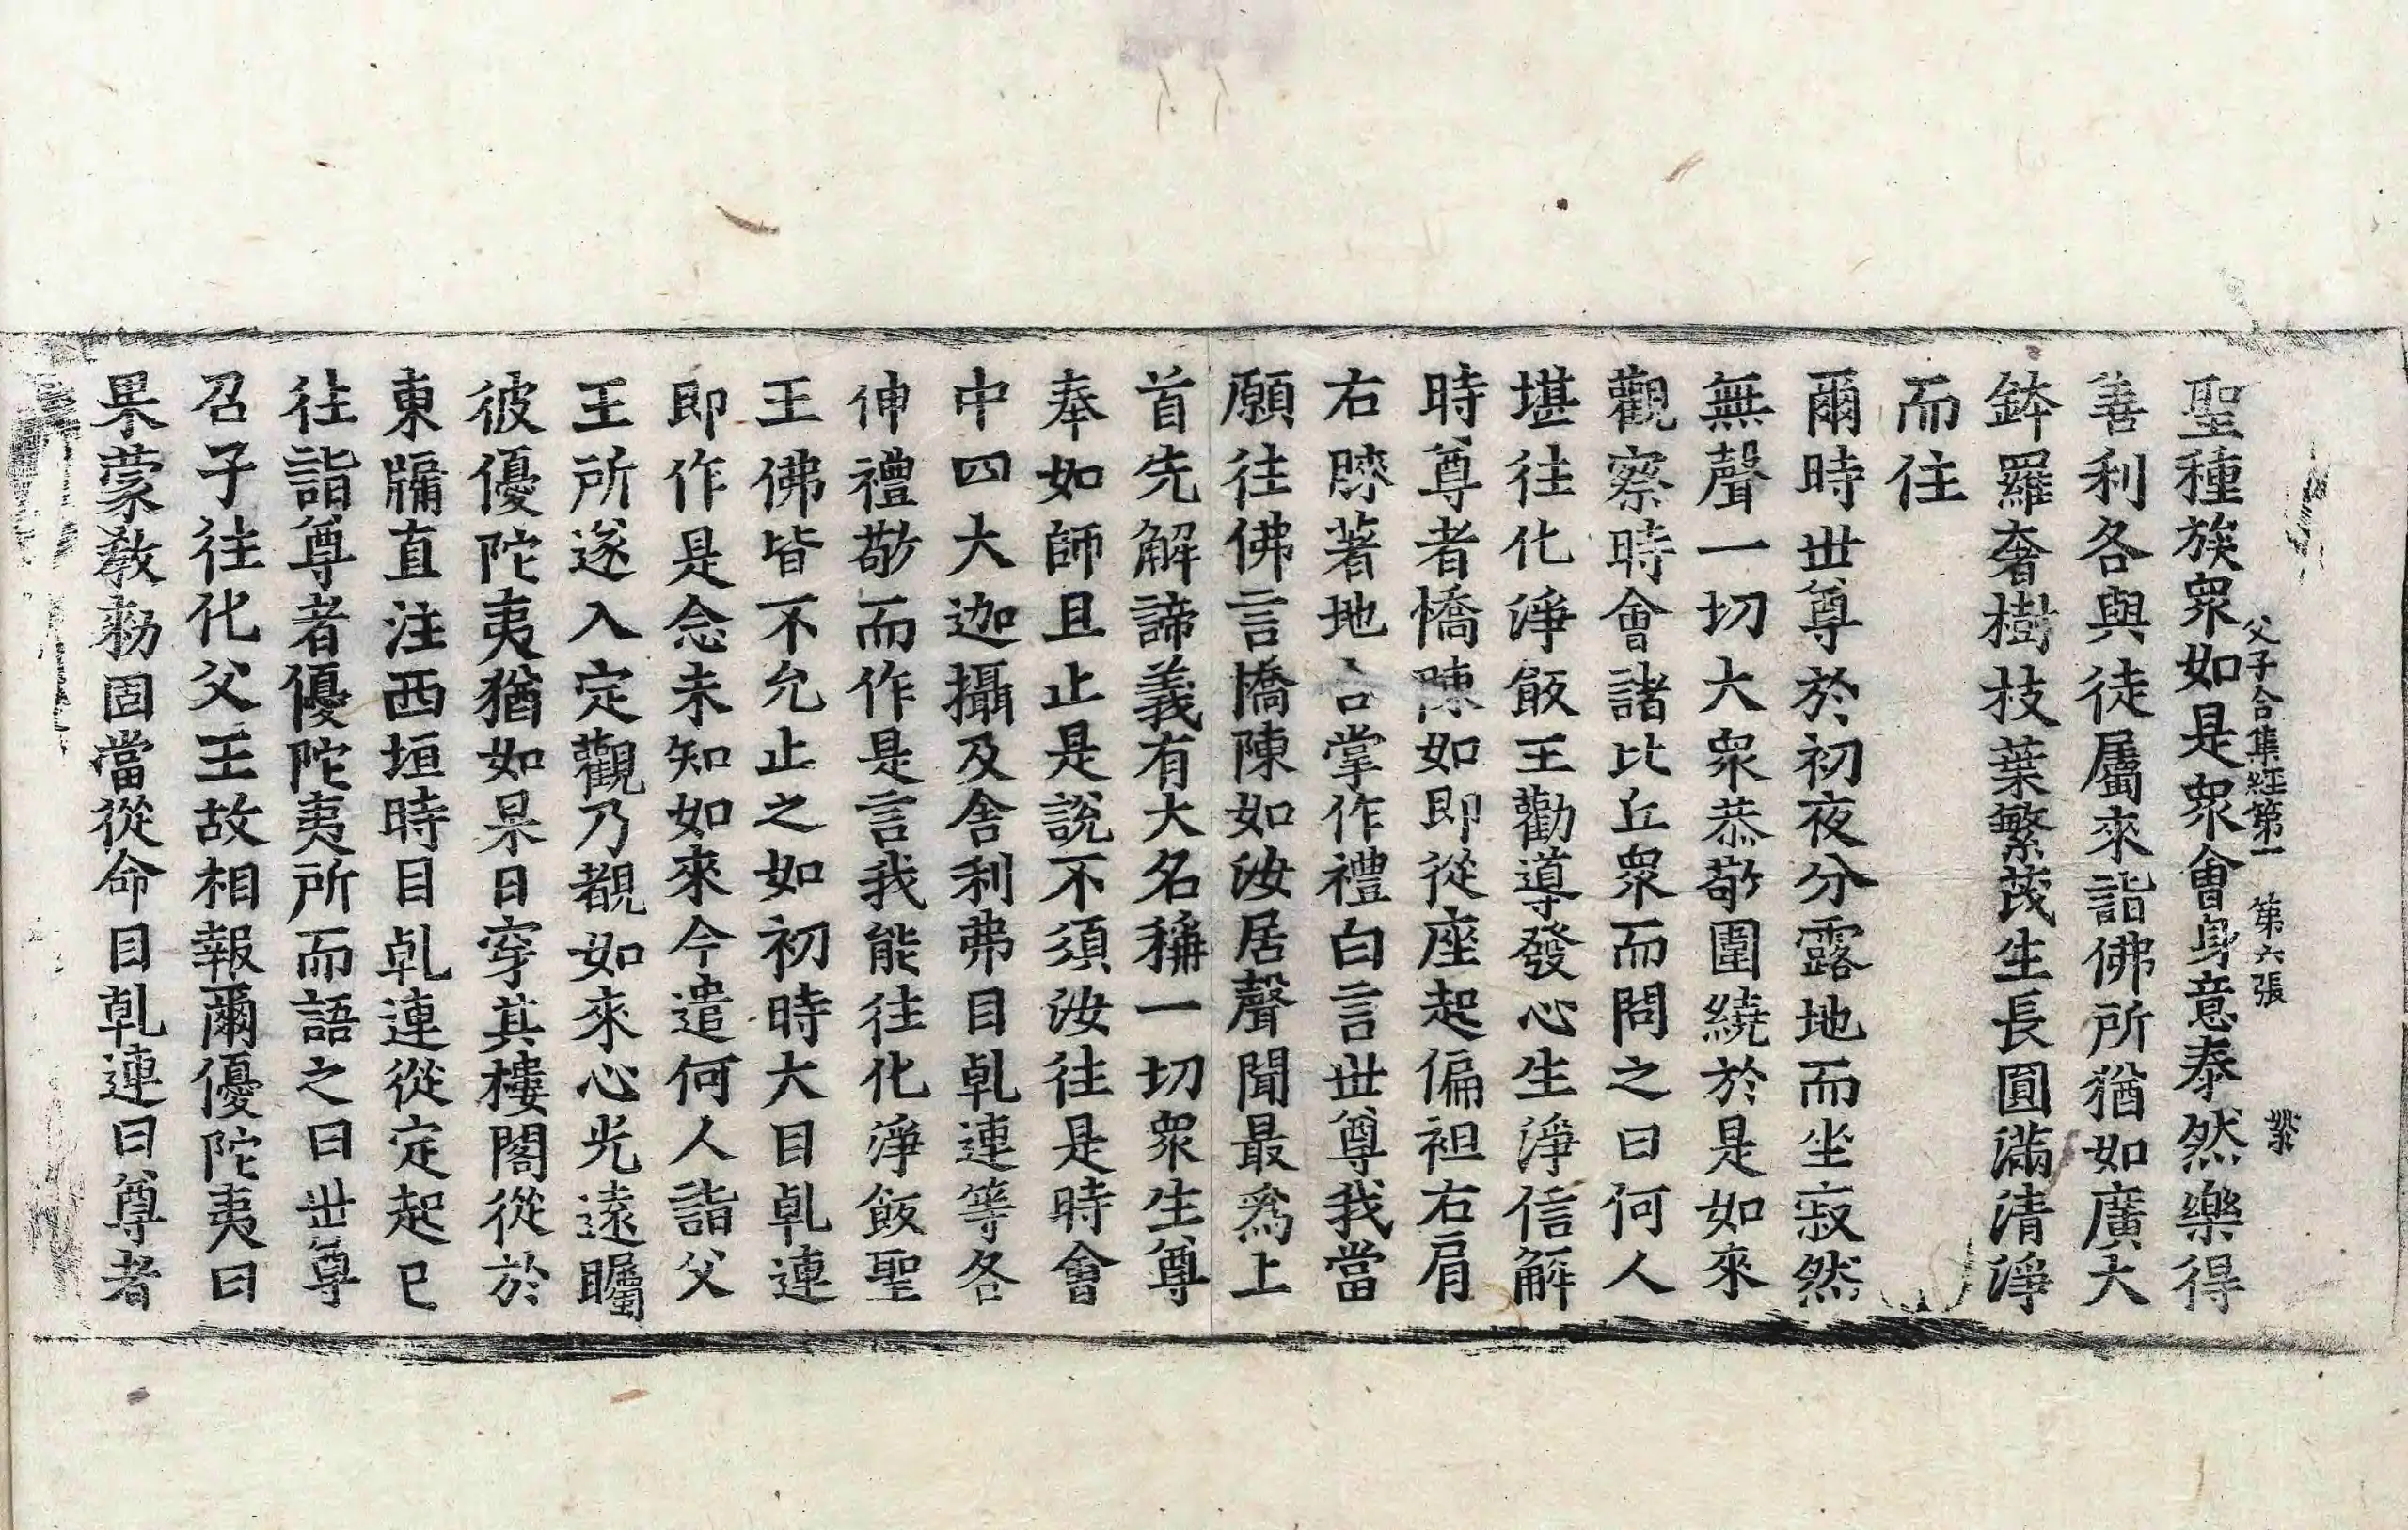 父子合集經第一　第六張　業
聖種族衆如是衆會身意泰然樂得
善利各與徒屬來詣佛所猶如廣大
鉢羅奢樹枝葉繁茂生長圓滿清淨
而住
爾時世尊於初夜分露地而坐寂然
無聲一切大衆恭敬圍繞於是如來
觀察時會諸比丘衆而問之曰何人
堪往化淨飯王勸導發心生淨信解
時尊者憍陳如即從座起偏袒右肩
右膝著地合掌作禮白言世尊我當
願往佛言憍陳如汝居聲聞最爲上
首先解諦義有大名稱一切衆生尊
奉如師且止是說不須汝往是時會
中四大迦攝及舍利弗目乹連等各
伸禮敬而作是言我能往化淨飯聖
王佛皆不允止之如初時大目乹連
即作是念未知如來今遣何人詣父
王所遂入定觀乃覩如來心光遠矚
彼優陀夷猶如杲日穿其樓閣從於
東牖直注西垣時目乹連從定起已
往詣尊者優陀夷所而語之曰世尊
召子往化父王故相報爾優陀夷曰
果蒙教勑固當從命目乹連曰尊者